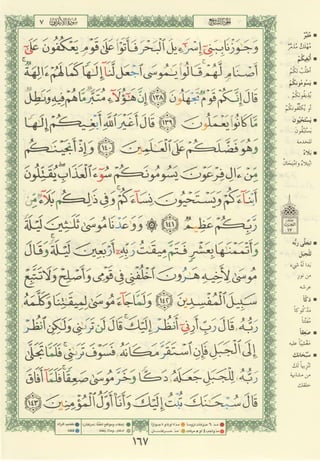 سُورَةُ الأَعْرَافِ ٧
وَجَـٰوَزْنَا بِبَنِىٓ إِسْرَٰٓءِيلَ ٱلْبَحْرَ فَأَتَوْا۟ عَلَىٰ قَوْمٍ يَعْكُفُونَ عَلَىٰٓ
أَصْنَامٍ لَّهُمْ ۚ قَالُوا۟ يَـٰمُوسَى ٱجْعَل لَّنَآ إِلَـٰهًا كَمَا لَهُمْ ءَالِهَةٌ ۚ
قَالَ إِنَّكُمْ قَوْمٌ تَجْهَلُونَ ١٣٨ إِنَّ هَـٰٓؤُلَآءِ مُتَبَّرٌ مَّا هُمْ فِيهِ وَبَـٰطِلٌ
مَّا كَانُوا۟ يَعْمَلُونَ ١٣٩ قَالَ أَغَيْرَ ٱللَّهِ أَبْغِيكُمْ إِلَـٰهًا
وَهُوَ فَضَّلَكُمْ عَلَى ٱلْعَـٰلَمِينَ ١٤٠ وَإِذْ أَنجَيْنَـٰكُم
مِّنْ ءَالِ فِرْعَوْنَ يَسُومُونَكُمْ سُوٓءَ ٱلْعَذَابِ ۖ يُقَتِّلُونَ
أَبْنَآءَكُمْ وَيَسْتَحْيُونَ نِسَآءَكُمْ ۚ وَفِى ذَٰلِكُم بَلَآءٌ مِّن
رَّبِّكُمْ عَظِيمٌ ١٤١ ۞ وَوَٰعَدْنَا مُوسَىٰ ثَلَـٰثِينَ لَيْلَةً
وَأَتْمَمْنَـٰهَا بِعَشْرٍ فَتَمَّ مِيقَـٰتُ رَبِّهِۦٓ أَرْبَعِينَ لَيْلَةً ۚ وَقَالَ
مُوسَىٰ لِأَخِيهِ هَـٰرُونَ ٱخْلُفْنِى فِى قَوْمِى وَأَصْلِحْ وَلَا تَتَّبِعْ
سَبِيلَ ٱلْمُفْسِدِينَ ١٤٢ وَلَمَّا جَآءَ مُوسَىٰ لِمِيقَـٰتِنَا وَكَلَّمَهُۥ
رَبُّهُۥ قَالَ رَبِّ أَرِنِىٓ أَنظُرْ إِلَيْكَ ۚ قَالَ لَن تَرَىٰنِى وَلَـٰكِنِ ٱنظُرْ
إِلَى ٱلْجَبَلِ فَإِنِ ٱسْتَقَرَّ مَكَانَهُۥ فَسَوْفَ تَرَىٰنِى ۚ فَلَمَّا تَجَلَّىٰ
رَبُّهُۥ لِلْجَبَلِ جَعَلَهُۥ دَكًّا وَخَرَّ مُوسَىٰ صَعِقًا ۚ فَلَمَّآ أَفَاقَ
قَالَ سُبْحَـٰنَكَ تُبْتُ إِلَيْكَ وَأَنَا۠ أَوَّلُ ٱلْمُؤْمِنِينَ ١٤٣
١٦٧